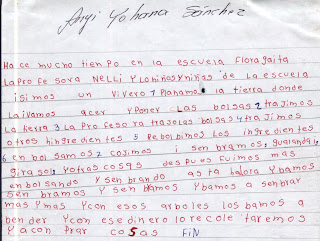 Angi Yohana Sánchez
Hace mucho tienpo en la escuela floragaita
La profe sora NELLI Y Loniños Yniñas de la escuela
isimos un vivero 1 Planamos la tierra donde
La ivamos acer Y Poner Las bolsas 2 trajimos
La tierra 3 La Profesora trajolas bolsas 4 trajimos
otros hingredientes 5 Rebolbimos Los ingredientes
6 en bol samos 7 cosimos i sen bramos, gualanda,
gira sol, Y otras cosas des pues fuimos mas
en bolsando y sen brando as ta haLora Ybamos
sen bramos Y sen blamos Ybamos a senbrar
mas Y mas Y con esos arboles Los bamos a
ben der Y con ese dinero lo recole taremos
Y a con prar cosas FiN